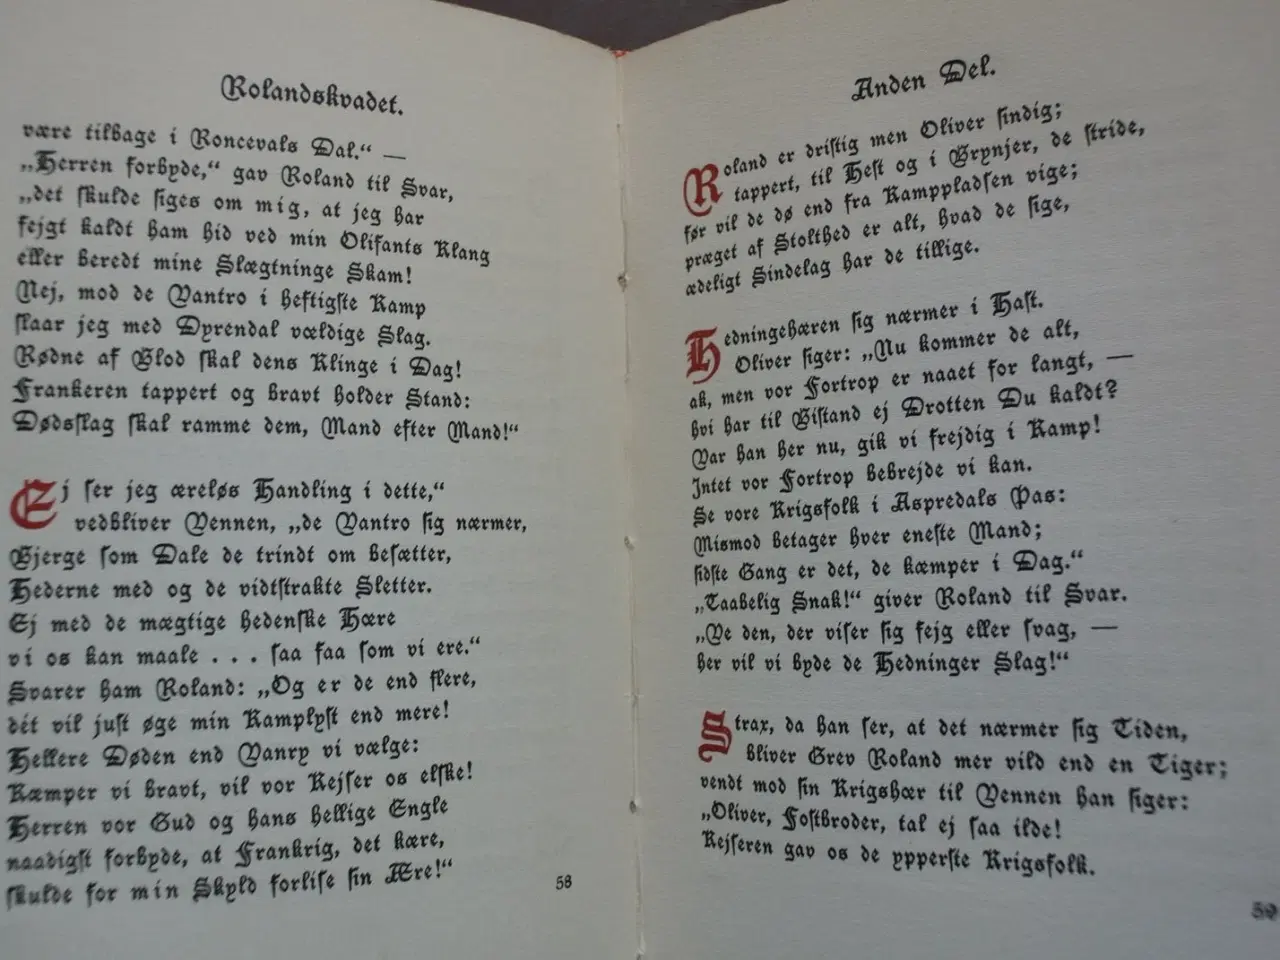 Rolandskvadet.
være tilbage i Roncevals Dal.“ —
„Herren forbyde,“ gav Roland til Svar,
„det skulde siges om mig, at jeg har
fejgt kaldt ham hid ved min Olifants Klang
eller beredt mine Slægtninge Skam!
Nej, mod de Vantro i heftigste Kamp
slaar jeg med Dyrendal vældige Slag.
Rødne af Blod skal dens Klinge i Dag!
Frankeren tappert og bravt holder Stand:
Dødsslag skal ramme dem, Mand efter Mand!“
Ej ser jeg æreløs Handling i dette,“
vedbliver Vennen, „de Vantro sig nærmer,
Bjerge som Dale de trindt om besætter,
Hederne med og de vidtstrakte Sletter.
Ej med de mægtige hedenske Hære
vi os kan maale . . . saa faa som vi ere.“
Svarer ham Roland: „Og er de end flere,
dét vil just øge min Kamplyst end mere!
Hellere Døden end Vanry vi vælge:
Kæmper vi bravt, vil vor Kejser os elske!
Herren vor Gud og hans hellige Engle
naadigst forbyde, at Frankrig, det kære,
skulde for min Skyld forlise sin Ære!“
58
Anden Del.
Roland er dristig men Oliver sindig;
tappert, til Hest og i Brynjer, de stride,
før vil de dø end fra Kamppladsen vige;
præget af Stolthed er alt, hvad de sige,
ædeligt Sindelag har de tillige.
Hedningehæren sig nærmer i Hast.
Oliver siger: „Nu kommer de alt,
ak, men vor Fortrop er naaet for langt, —
hvi har til Bistand ej Drotten Du kaldt?
Var han her nu, gik vi frejdig i Kamp!
Intet vor Fortrop bebrejde vi kan.
Se vore Krigsfolk i Aspredals Pas:
Mismod betager hver eneste Mand;
sidste Gang er det, de kæmper i Dag.“
„Taabelig Snak!“ giver Roland til Svar.
„Ve den, der viser sig fejg eller svag, —
her vil vi byde de Hedninger Slag!“
Strax, da han ser, at det nærmer sig Tiden,
bliver Grev Roland mer vild end en Tiger;
vendt mod sin Krigshær til Vennen han siger:
„Oliver, Fostbroder, tal ej saa ilde!
Kejseren gav os de ypperste Krigsfolk.
59